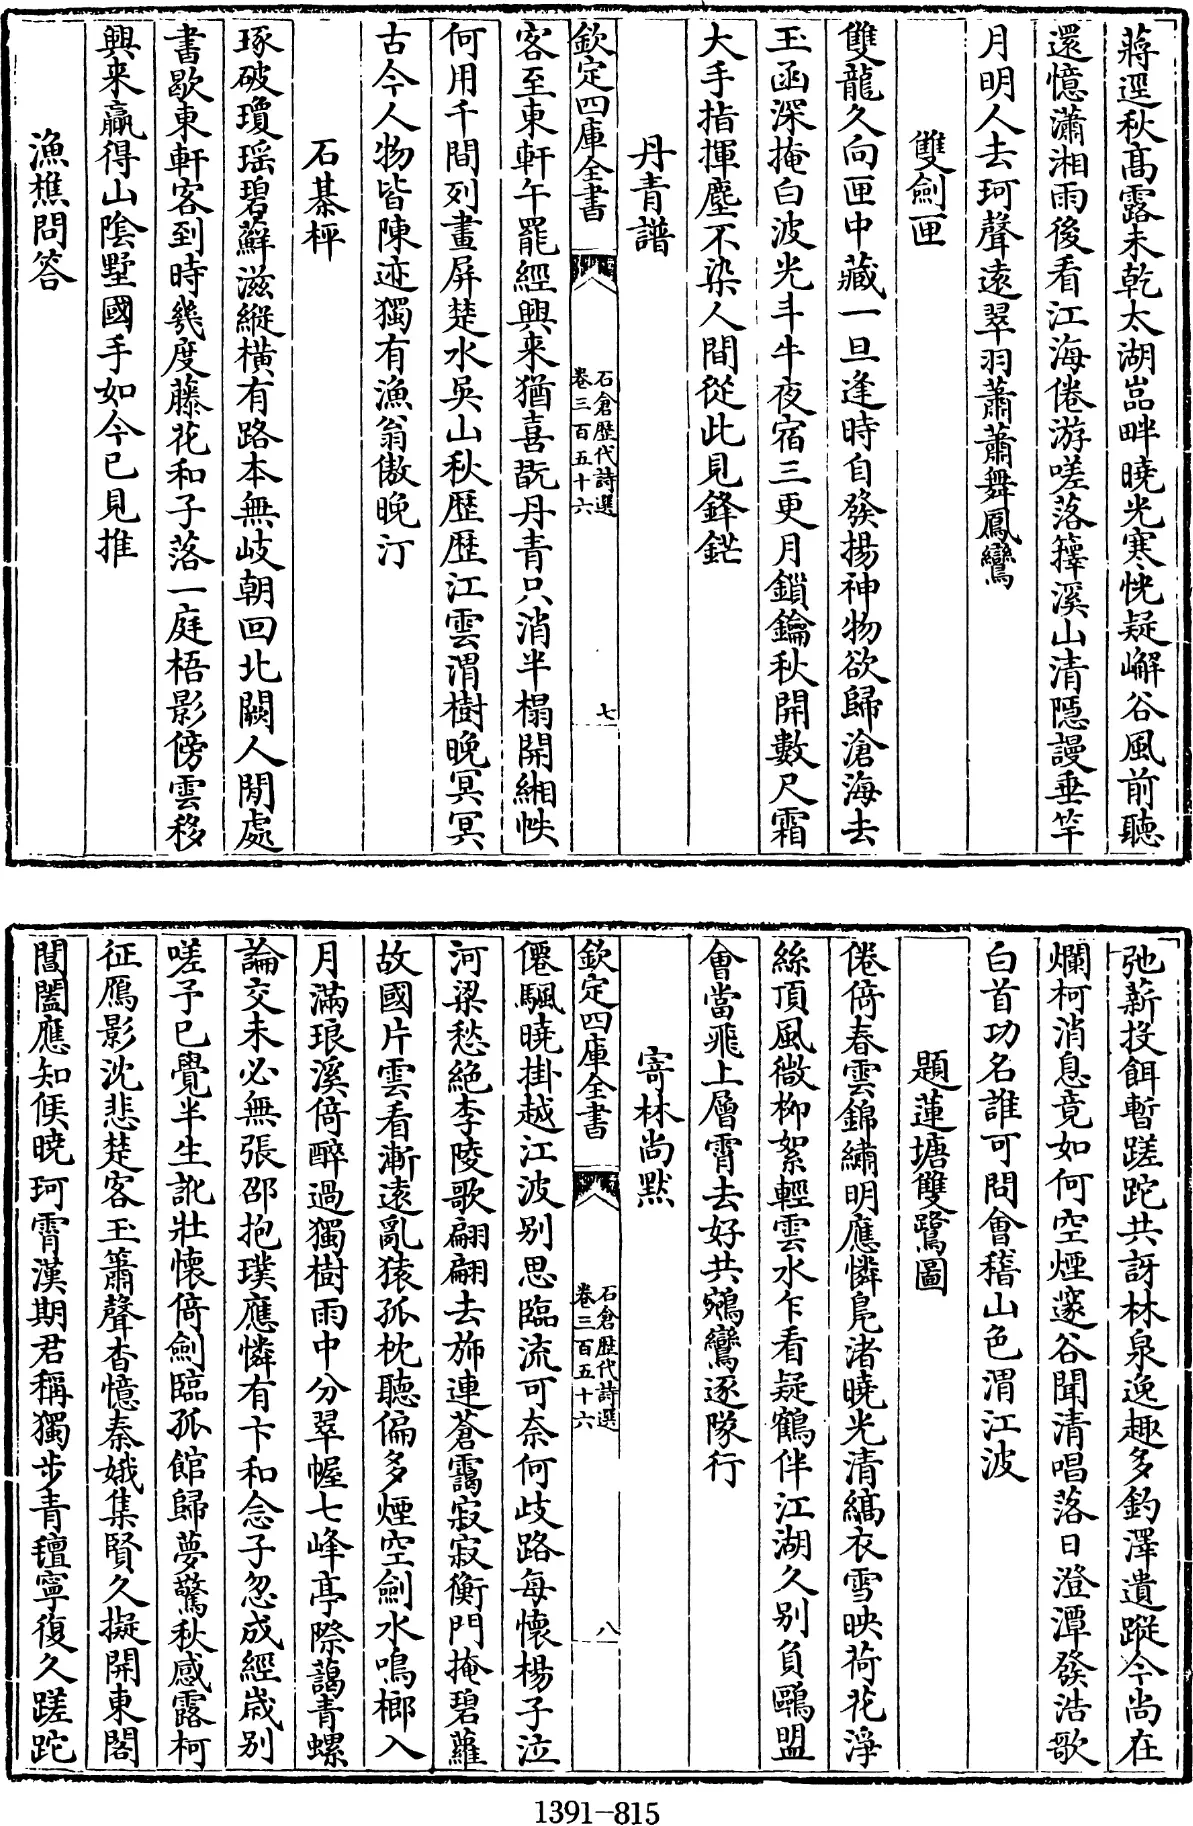 蔣逕秋高露未乾太湖嵓畔曉光寒恍疑嶰谷風前聽
還憶瀟湘雨後看江海倦游嗟落籜溪山清隱謾垂竿
月明人去珂聲遠翠羽蕭蕭舞鳳鸞
雙劍匣
雙龍久向匣中藏一旦逢時自發揚神物欲歸滄海去
玉函深掩白波光斗牛夜宿三更月鎖鑰秋開數尺霜
大手指揮塵不染人間從此見鋒鋩
丹青譜
欽定四庫全書
石倉歴代詩選
卷三百五十六
七
客至東軒午罷經興来猶喜翫丹青只消半榻開緗帙
何用千間列畫屏楚水吳山秋歴歴江雲渭樹晚冥冥
古今人物皆陳迹獨有漁翁傲晚汀
石棊枰
琢破瓊瑶碧蘚滋縱横有路本無岐朝回北闕人閒處
書歇東軒客到時幾度藤花和子落一庭梧影傍雲移
興来贏得山陰墅國手如今已見推
漁樵問答
弛薪投餌暫蹉跎共訝林泉逸趣多釣澤遺蹤今尚在
爛柯消息竟如何空煙邃谷聞清唱落日澄潭發浩歌
白首功名誰可問會稽山色渭江波
題蓮塘雙鷺圖
倦倚春雲錦繡明應憐鳧渚曉光清縞衣雪映荷花淨
絲頂風微柳絮輕雲水乍看疑鶴伴江湖久别負鷗盟
會當飛上層霄去好共鵷鸞逐隊行
寄林尚默
欽定四庫全書
石倉歴代詩選
卷三百五十六
八
僊颿曉掛越江波别思臨流可奈何歧路每懷楊子泣
河梁愁絶李陵歌翩翩去斾連蒼靄寂寂衡門掩碧蘿
故國片雲看漸遠亂猿孤枕聽偏多煙空劍水鳴榔入
月滿琅溪倚醉過獨樹雨中分翠幄七峰亭際藹青螺
論交未必無張邵抱璞應憐有卞和念子忽成經嵗别
嗟予已覺半生訛壯懷倚劍臨孤館歸夢驚秋感露柯
征鴈影沈悲楚客玉簫聲杳憶秦娥集賢久擬開東閣
閶闔應知候曉珂霄漢期君稱獨步青氊寧復久蹉跎
1391-815